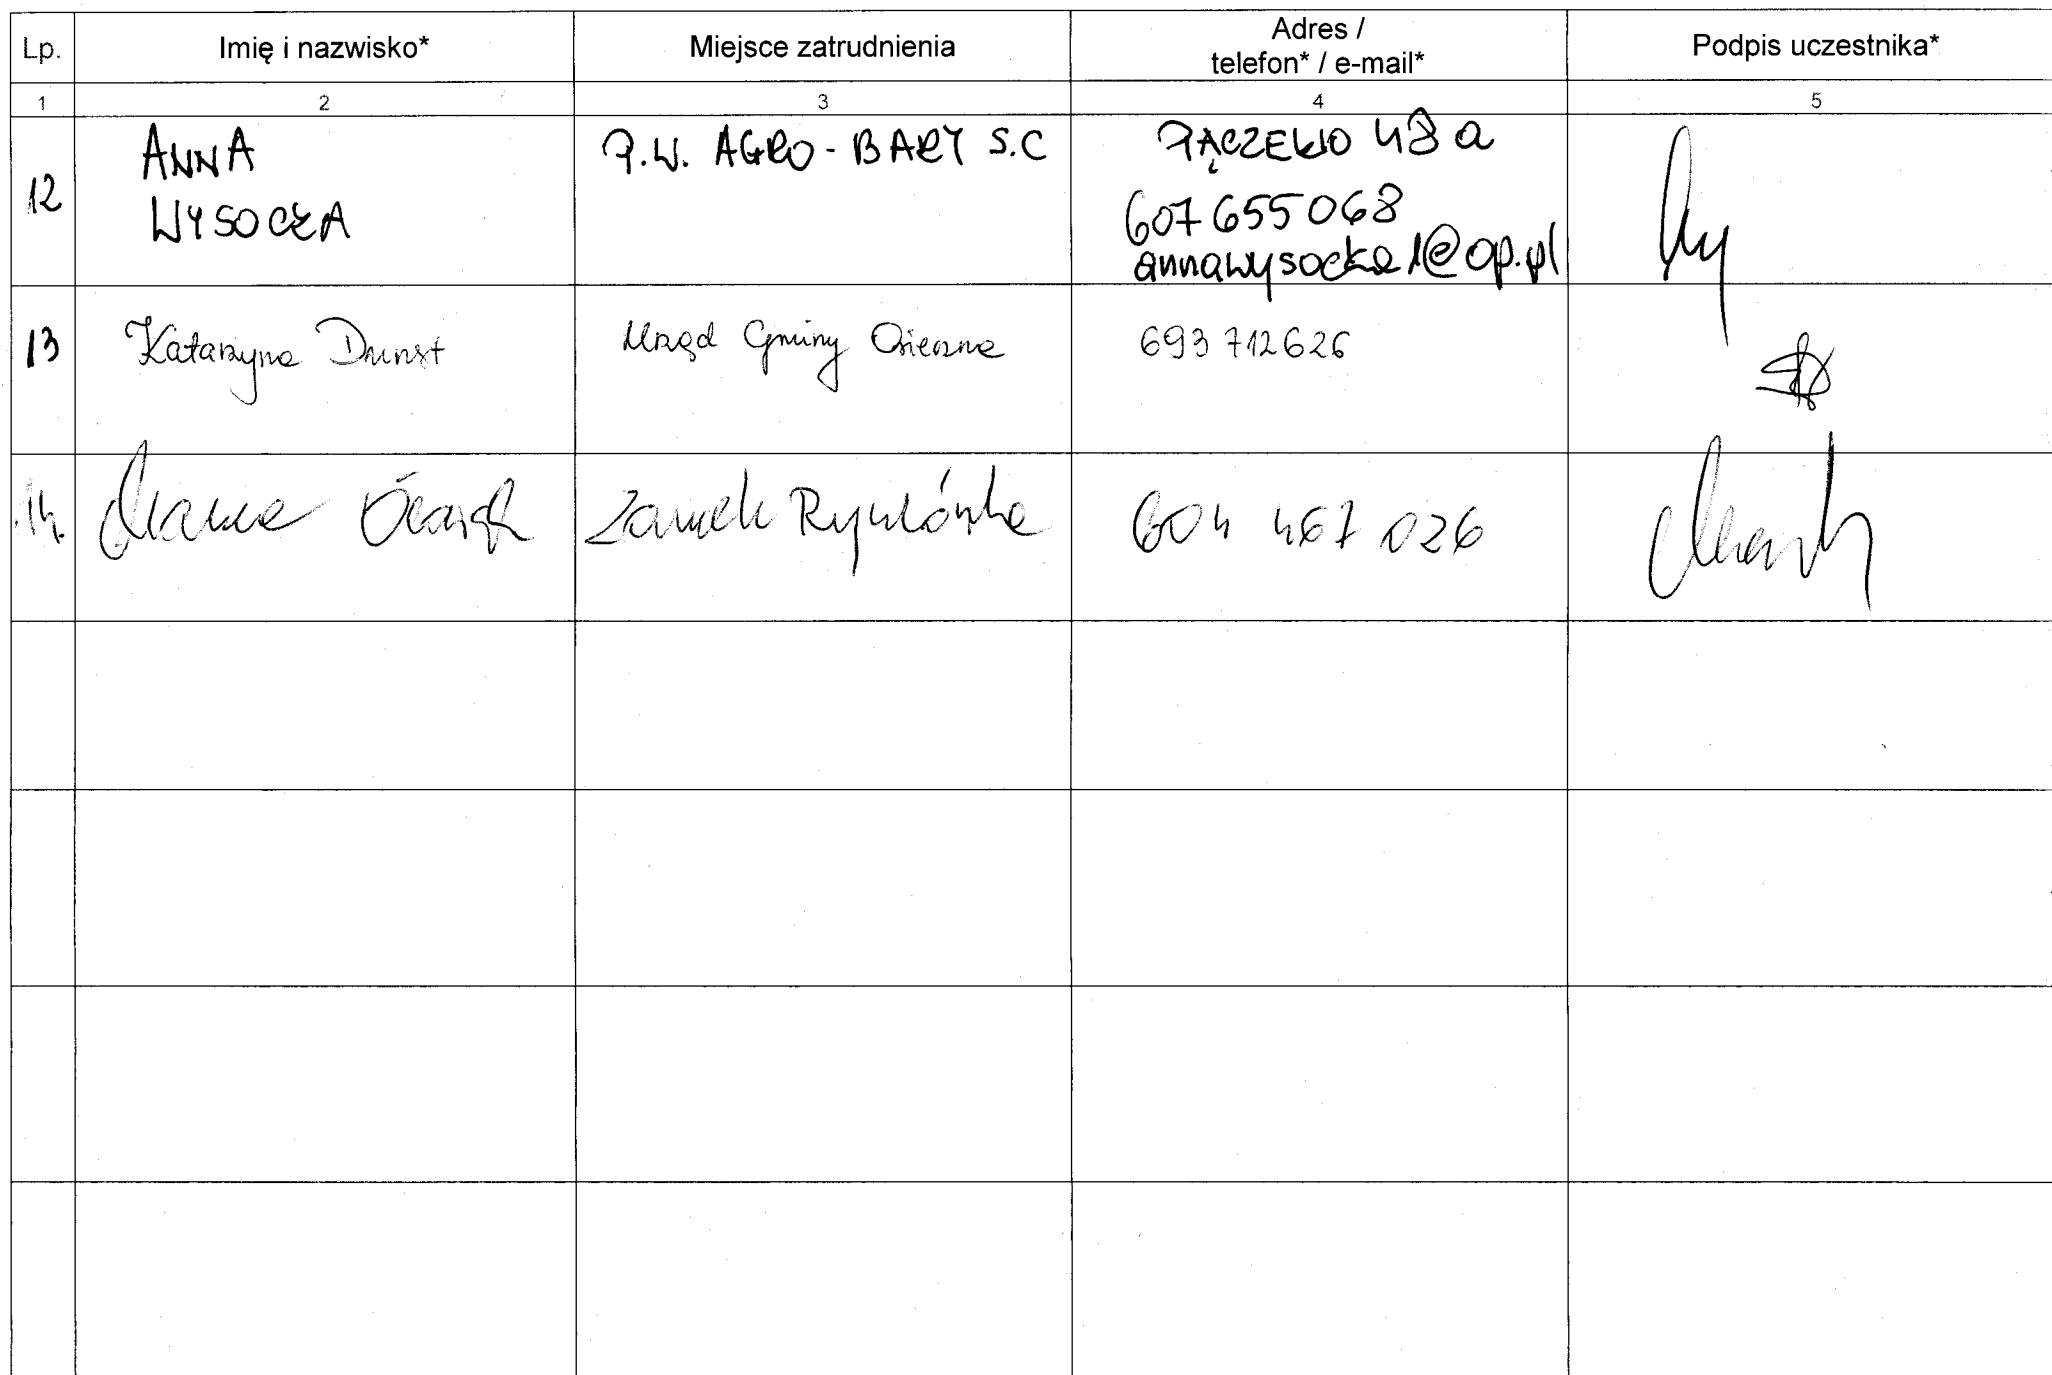 Lp. Imię i nazwisko* Miejsce zatrudnienia Adres / telefon* / e-mail* Podpis uczestnika*
1 2 3 4 5
12 ANNA WYSOCKA P.W. AGRO-BARY S.C 48 a
607 655 068
annawysocka1@op.pl
13 Katarzyna Urząd Gminy Osieczna 693 712 626
14. Zamek 604 467 026